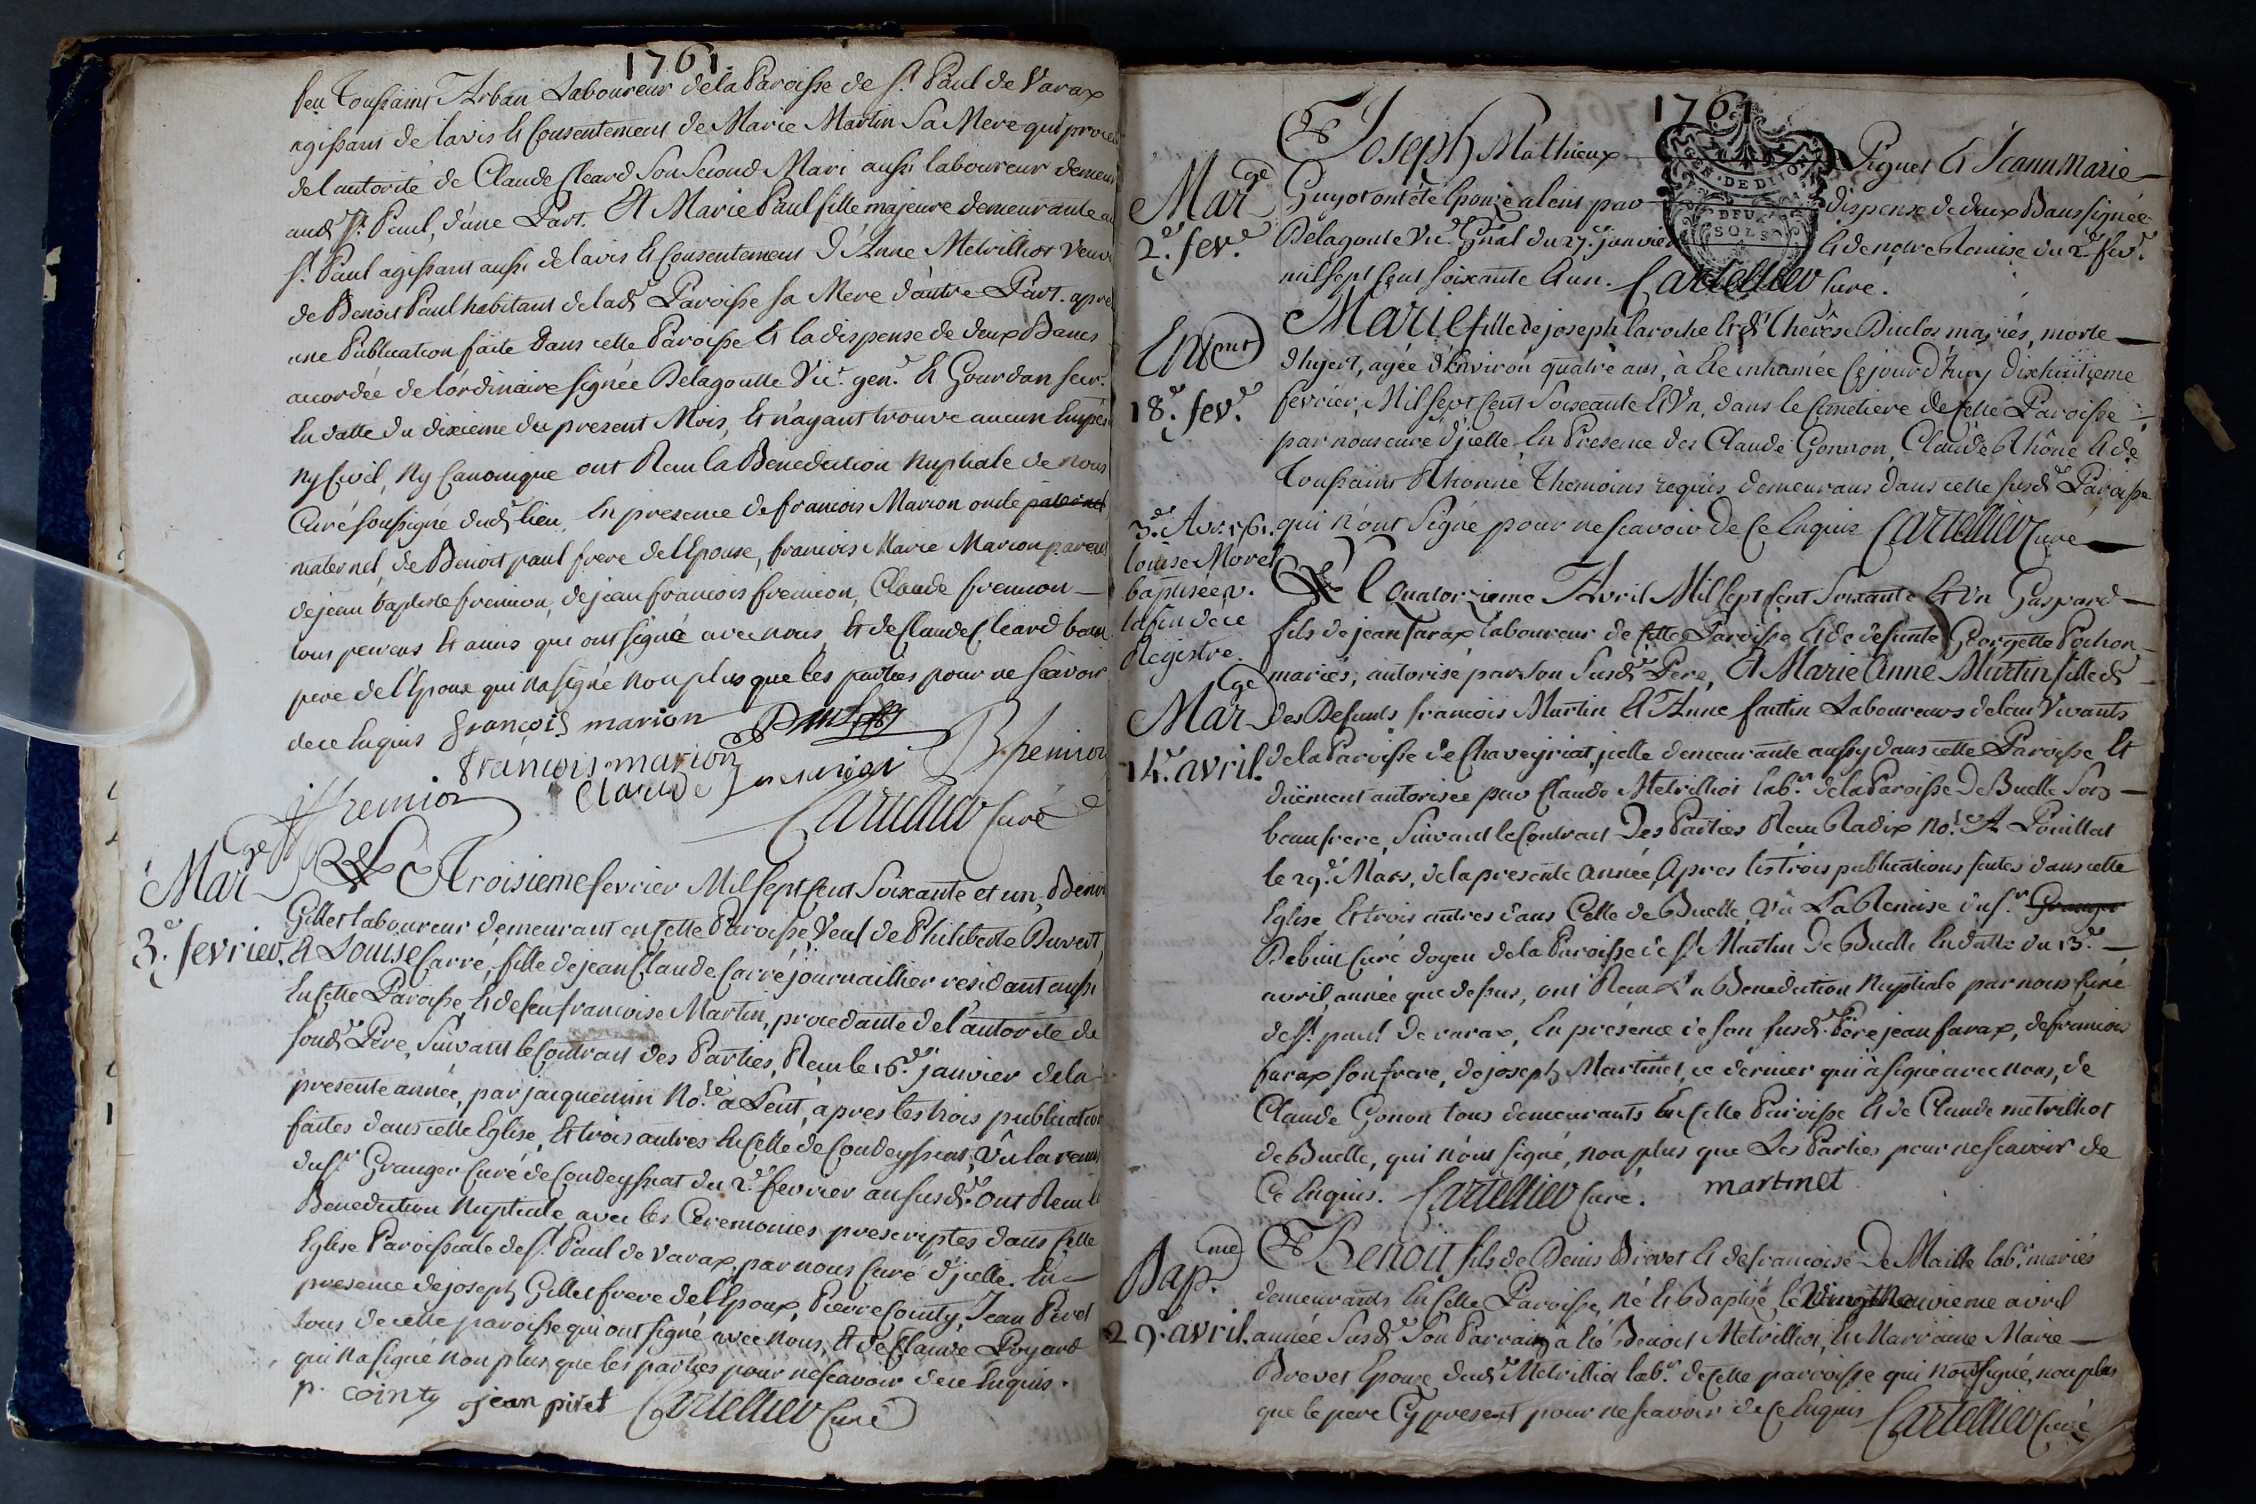 1761.
feu Toussaint Arban Laboureur de la Paroisse de St. Paul de Varax
agissant de l'avis et Consentement de Marie Martin Sa Mere qui procede
de l'autorité de Claude Cleard Son Second Mari aussi laboureur demeur
aud. St. Paul, d'une Part. Et Marie Paul fille majeure demeurante a
St. Paul agissant aussi de l'avis et Consentement d'Anne Metrilliot veuve
de Benoit Paul habitant de lad. Paroisse sa Mere d'autre Part. apres
une Publication faite Dans cette Paroisse et la dispense de deux Bancs
accordée de l'ordinaire signée Delagoutte Vic. gen. et Gourdan secr.
en datte du dixieme du present Mois, et n'ayant trouvé aucun Empes
ny Civil, Ny Canonique ont Recu la Benediction Nuptiale de nous
Curé soussigné dud. lieu, En presence de francois Marion oncle
maternel de Benoit paul frere de l'Epouse, francois Marie Marion parent
de jean baptiste fremion, de jean francois fremion, Claude fremion
tous parens et amis qui ont signé avec nous, et de Claude Cleard beau
pere de l'Epoux qui n'a signé non plus que les parties pour ne scavoir
de ce Enquis françois marion
françois marion B fremion
jf fremion Claude
Cartellier Curé
Marge
3e. fevrier.
Le Troisieme fevrier Mil Sept Cent Soixante et un, Benoit
Gillet laboureur demeurant en Cette Paroisse Veuf de Philiberte Buvert,
et Louise Carré, fille de jean Claude Carré journaillier residant aussi
En Cette Paroisse et de feu francoise Martin, procedante de l'autorité de
sond. Père, Suivant le Contract des Parties, Recu le 16e. janvier de la
presente année, par jacquemin No.re a Lent, apres les trois publications
faites dans cette Eglise, et trois autres En Celle de Condeyssiat, Vû la remise
du Sr. Granger Curé de Condeyssiat du 2e. fevrier au susd. ont Recu la
Benediction Nuptiale avec les Ceremonies prescriptes dans Cette
Eglise Paroissiale de St. Paul de Varax, par nous Curé d'jcelle. En
presence de joseph Gillet frere de l'Epoux, Pierre Cointy, Jean Piret
tous de cette paroisse qui ont signé avec Nous, et de Claude Poyard
qui n'a signé non plus que les parties pour ne scavoir de ce Enquis.
p. cointy jean piret Cartellier Curé
1761
Marge
2e. fev.e
Joseph Mathieux Piguet et Jeanne Marie
Guyot ont été Epousé a Lent par dispense de deux Bans signée
Delagoute Vic. Gnal du 27e. janvier et de notre Remise du 2e. fev.
mil sept cent soixante et un. Cartellier Curé.
GEN. DE DIJON
DEUX
SOLS
Entment
18e. fev.e
Marie fille de joseph Laroche et de Thérèse Duclos mariés, morte
d'hyert, agée d'Environ quatre ans, à été inhumée Cejourd'huy dixhuitieme
février, Mil Sept Cent Soixante et Un, dans le Cimetiere de Cette Paroisse
par nous curé d'jcelle, En Presence des Claude Gonnon, Claude Rhône et de
Toussaint Rhonne Themoins requis demeurans dans cette susd. Paroisse
qui n'ont Signé pour ne scavoir de Ce Enquis Cartellier Curé
3e. Avr. 1761.
louise Morel
baptisée v.
la fin de ce
Registre.
Marge
14e. avril.
Le quatorzieme Avril Mil Sept Cent Soixante et Un Gaspard
fils de jean farax laboureur de Cette Paroisse et de defunte Georgette Pochon
mariés, autorisé par son susd. Pere, Et Marie Anne Martin fille de
des Defunts francois Martin et Anne fantin Laboureurs de leur Vivants
de la Paroisse de Chaveyriat, jcelle demeurante aussy dans cette Paroisse et
düement autorisée par Claude Metrillot lab.r de la Paroisse De Buelle Son
beaufrere, Suivant le Contract Des Parties Recu Radix No.re A Pouillat
le 29e. Mars, de la presente année, Apres les trois publications faites dans cette
Eglise et trois autres dans Celle de Buelle, Vû La Remise du Sr. Granger
Debuit Curé doyen de la Paroisse de St Martin De Buelle En datte du 13e.
avril, année que dessus, ont Recu La Benediction Nuptiale par nous Curé
de St. paul De varax, En présence de son susd. Père jean farax, de francois
farax son frere, de joseph Martinet, ce dernier qui à signé avec nous, de
Claude Gonon tous demeurants En Cette Paroisse et de Claude metrillot
de Buelle, qui n'ont signé, non plus que Les Parties pour ne scavoir de
Ce Enquis. Cartellier Curé. martinet
Bapme.
29e. avril.
Benoit fils de Denis Brevet et de francoise De Maille lab.r mariés
demeurants En Cette Paroisse, né et Baptisé le Vingt Neuvieme avril
année Susd. Son Parrain a été Benoit Metrilliot, La Marraine Marie
Brevet Epouse dud. Metrilliot lab.r de Cette paroisse qui n'ont signé, non plus
que le pere Cy present pour ne scavoir de Ce Enquis Cartellier Curé